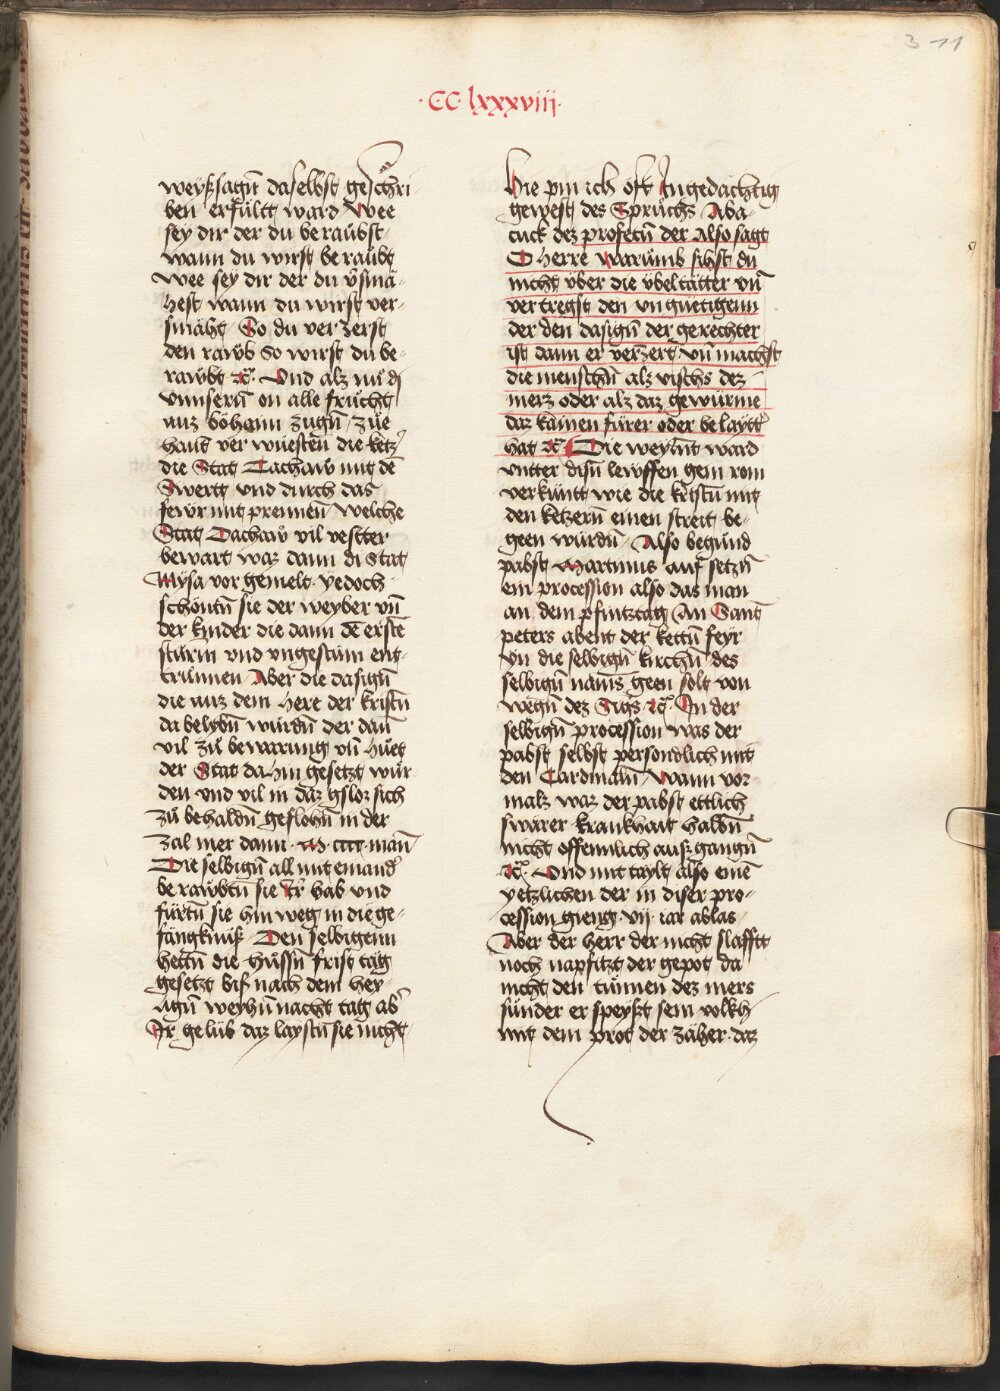 3 11
·CC·lxxxviii·
weÿssagūn daselbst geschri
ben erfülltt ward Wee
seÿ dir der du beraŭbst
wann du wirst beraŭbt
Wee seÿ dir der du v̄smä-
hest wann du wirst ver-
smäht So du verzerst
den rawb so wirst du be-
rawbt ꝛc̄. Vnd alz mit di
vnnserū on alle frŭcht
auz böhann zugū zŭe
hant ver wuesten die ketz̄
die Stat Tachaw mit dē
Swertt vnd durch das
fewr mit prennen Welche
Stat Tachaw vil vestter
bewart waz dann di stat
Mÿsa vor gemelt ÿedoch
schöntū sie der weÿber vn̄
der kinder die dann dē erstē
sturm̄ vnd vngestüm ent-
trŭnnen Aber die dasigū
die auz dem Here der kristū
da belÿbū wurdū der dan̄
vil zŭ bewarung vn̄ hŭet
der Stat dahin gesetzt wur
den vnd vil in daz gsloz sich
zŭ behaldū geflohū in der
zal mer dann M cccc man̄
Die selbigū all mit einand̄
berawbtū sie Ir hab vnd
fürtū sie hin weg in die ge-
fängknüß Den selbigenn
hettū die hŭssū frist täg
gesetzt biß nach dem heÿ-
ligū weÿhūnacht tag ab̄
Ir gelüb daz laÿstū sie nicht
Hie pin ich oft In gedächtig
gewest des Sprŭchs Aba-
cuck dez profetū der also sagt
O herre warŭmb sihst du
nicht vber die vbeltätter vn̄
vertregst den vngŭettigenn
der den dasigū der gerechter
ist dann er verzert vn̄ machst
die menschū alz vischs dez
merz oder alz daz gewürme
daz kainen fürer oder belaÿtt̄
hat ꝛc̄ Die weÿlnt ward
vntter disū lewffen gem rom
verkŭntt wie die kristū mit
den ketzernn einen streit be-
geen würdū Also begund
pabst Martinus auf setzū
ein procession also das man
an dem pfintztag An Sant
peters abent der kettū feÿr
yn die selbigū kirchū des
selbigū nam̄s geen solt von
wegū dez Sigs ꝛc̄. In der
selbigū procession was der
pabst selbst persondlich mit
den Cardinalū Wann vor
malz waz der pabst ettlich
swärer krankhait halbū
nicht offennlich ausz gangū
ꝛc̄. Vnd mit taÿlt also einē
ÿetzlichen der in diser pro-
cession gieng vij iar ablas
Aber der herr der nicht slafftt
noch napfitzt der gepot da
nicht den tŭnnen dez mers
sŭnder er speÿst sein volkh
mit dem prot der zäher daz